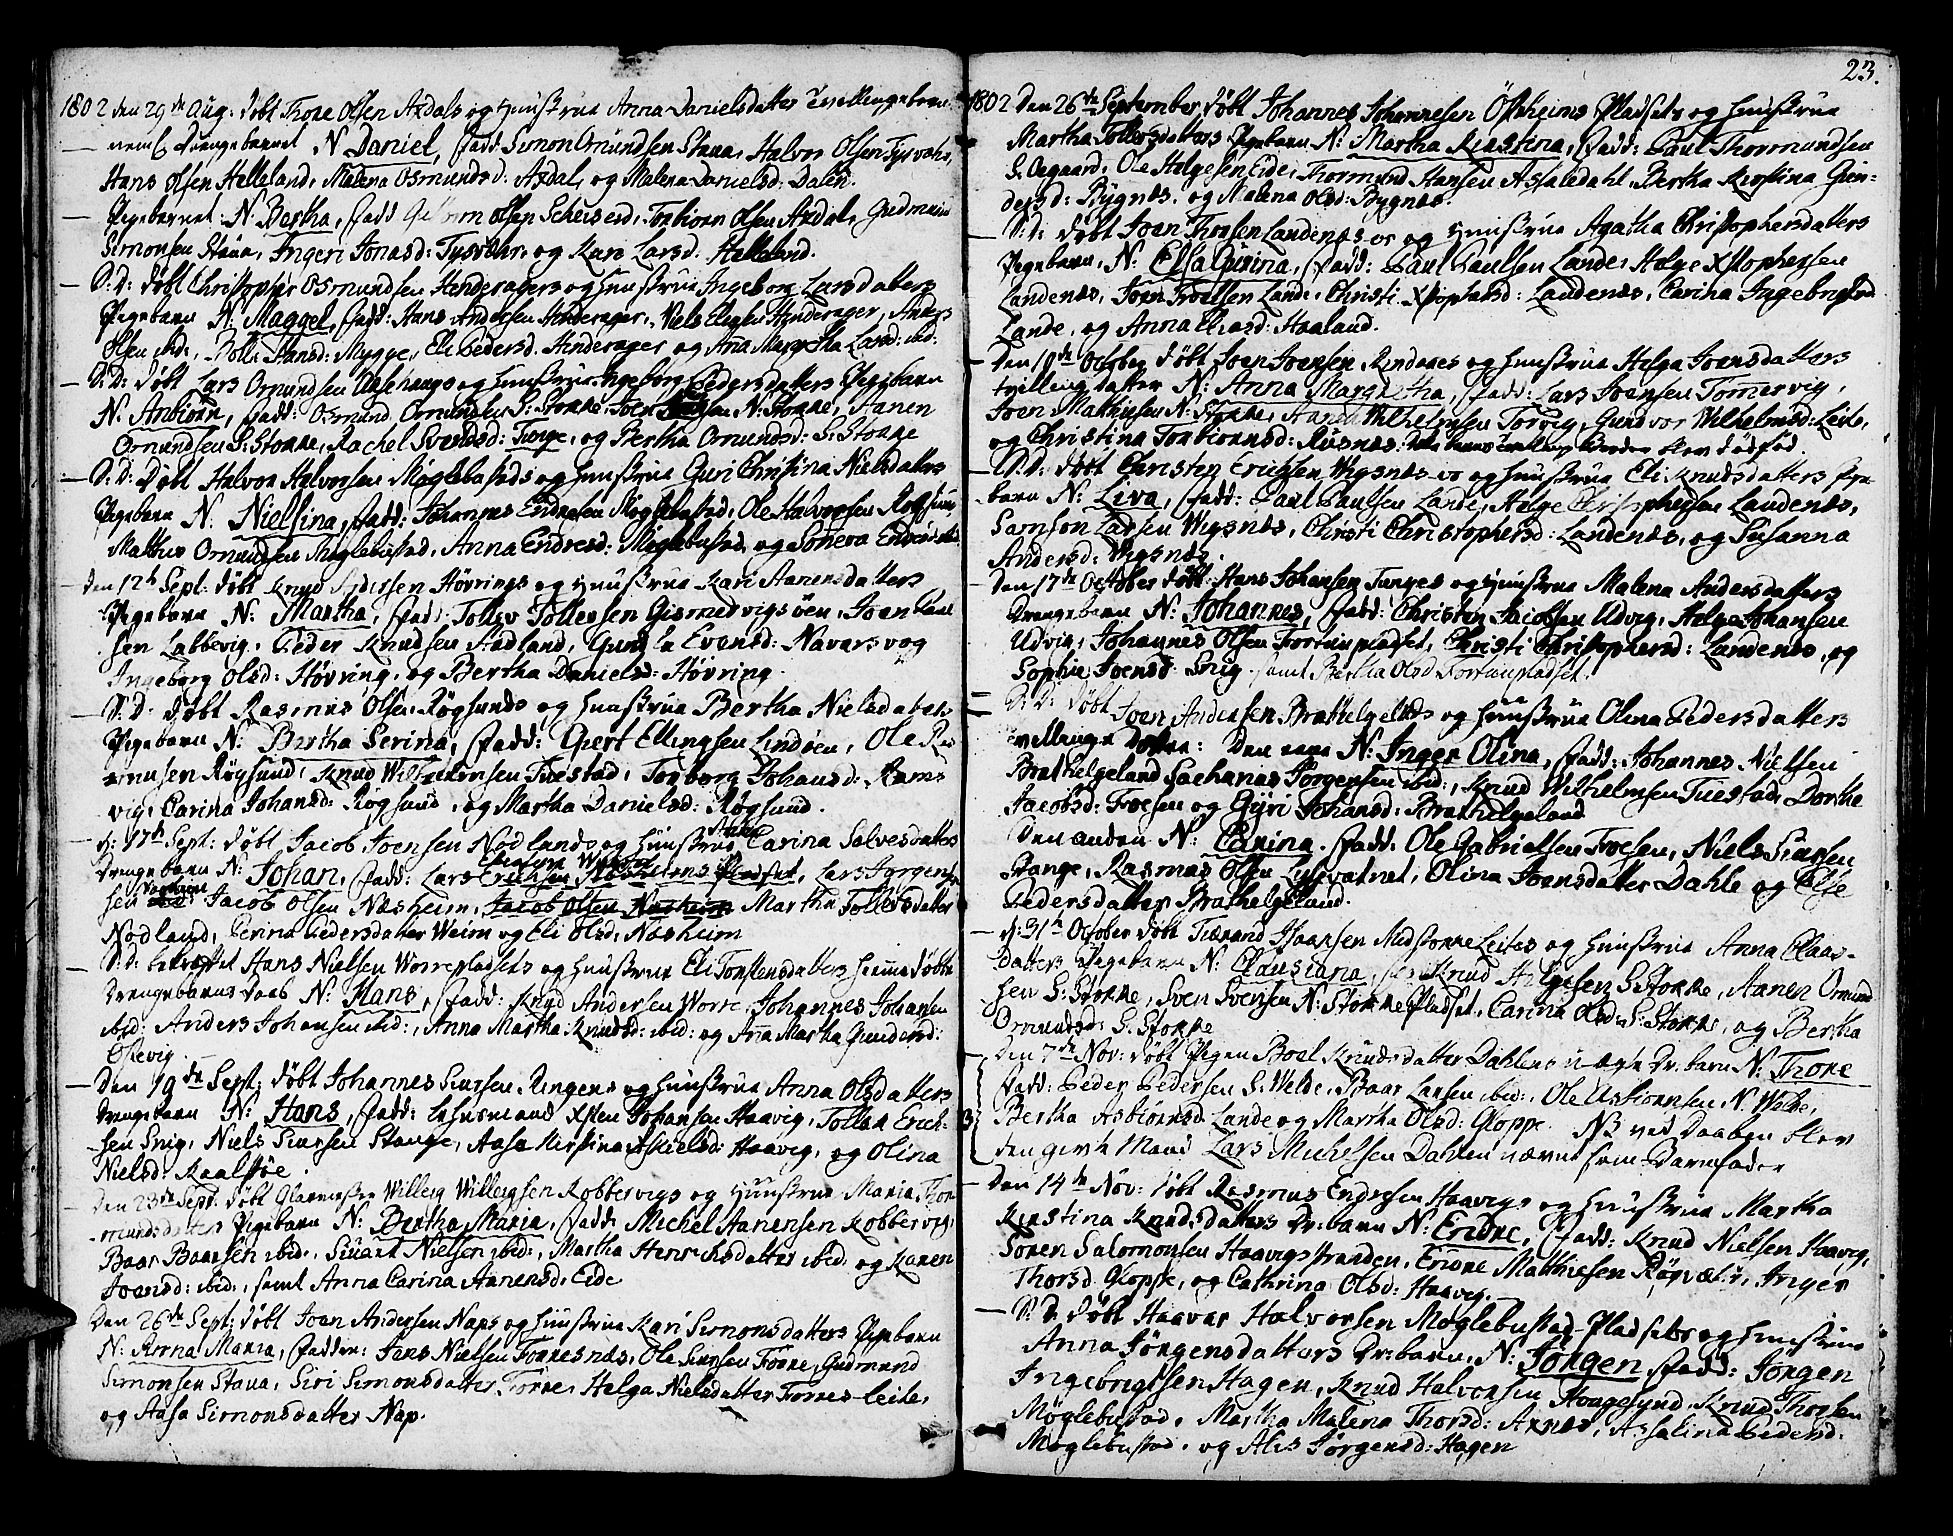 1802 den 29de Aug: døbt Thore Olsen Axdals og Hunstrue Anna Danielsdatter Tvillingebørn
nemlig Drengebarnet N Daniel, fadd: Simon Omundsen Stava, Halvor Olsen Tysvær,
Hans Olsen Helleland, Malena Osmundsd: Axdal, og Malena Danielsd: Dalen.
Pigebarnet N. Bertha, fadd Olsen Torbiorn Olsen Axdal, Gudmund
Simonsen Stava, Ingeri Jonasd: Tysvær, og Kari Larsd: Helleland.
D.D: døbt Christopher Osmundsen Henderagers og Hunstrue Ingeborg Larsdatters
Pigebarn N. Maggel, fadd: Hans Andersen Henderager, Niels Henderager, Anders
Olsen ibid:, Hansd: Mygge, Eli Pedersd. Henderager og Anna Margretha Larsd: ibid:
D.D: døbt Lars Omundsen og Hunstrue Ingeborg Pedersdatters Pigebarn
N. Anbiorn, fadd: Osmund Omundsen S: Stokke, Joen N: Stokke, Aanen
Omundsen S: Stokke, Rachel Svendsd: Tunge, og Bertha Omundsd: S: Stokke
D.D: Døbt Halvor Halvorsen Møglebustads og Hunstrue Guri Christina Nielsdatters
Pigebarn N: Nielsina, fadd: Johannes Endresen Møglebustad, Ole Halvorsen
Mathis Omundsen Møglebustad, Anna Endresd: Møglebustad, og Soneva
Den 12te Sept: døbt Knud Høvrings og Hunstrue Kari Aanensdatters
Pigebarn N: Martha, fadd: Tollev Tollevsen Gismervigsøen, Joen Paul
sen Labbevig, Peder Knudsen Aadland, Gunla Evensd: Navarsvog
Ingeborg Olsd: Høvring, og Bertha Danielsd: Høvring.
D.D. døbt Rasmus Olsen Røgsunds og Hunstrue Bertha Nielsdatters
Pigebarn N: Bertha Serina, fadd: Gert Ellingsen Lindøen, Ole Ra
smusen Røgsund, Knud Wilhelmsen Tuestad, Torborg Johansd: Rams
vig, Carina Johansd: Røgsund, og Martha Danielsd: Røgsund.
d: 17de Sept: døbt Jacob Joensen Nodlands og Hunstrue Carina Salvesdatters
Drengebarn N: Johan, fadd: Lars Lars Jørgen
sen Jacob Olsen Næsheim, Jacob Olsen Næsheim Martha Tollevsdatter
Nodland, Perina Pedersdatter Weim og Eli Olsd: Næsheim
D.D: bekræftet Hans Nielsen Worrepladsets og Hunstrue Eli Torstensdatters hiemmedøbte
Drengebarns Daab N: Hans, fadd: Knud Andersen Worre, Johannes Johansen
ibid: Anders Johansen ibid:, Anna Martha Knudsd: ibid: og Anna Martha Gundersd:
Østevig.
Den 19de Sept: døbt Johannes Siursen og Hunstrue Anna Olsdatters
Drengebarn N: Hans, fadd: Xsten Johansen Haavig, Tollak Erich-
sen Snig, Niels Siursen Stange, Aasa Kirstina Askielsd: Haavig, og Olina
Nielsd: Kaalstøe.
Den 23de Sept: døbt Willerig Willerigsen Kobbervigs og Hunstrue Maria Thor
mundsdatters Pigebarn N: Bertha Maria, fadd: Michel Aanensen Kobbervig,
Baar Baarsen ibid:, Siuart Nielsen ibid:, Martha Henrichsdatter ibid: og Karen
Joensd: ibid:, samt Anna Carina Aanensd: Eide
Den 26de Sept: døbt Joen Andersen Naps og Hunstrue Kari Simonsdatters Pigebarn
N: Anna Maria, fadder: Jens Nielsen Fornesnæs, Ole Siursen Forre, Gudmund
Simonsen Stava, Siri Simonsdatter Forre, Helga Nielsdatter Forres-leite,
og Aasa Simonsdatter Nap.
23.
1802 Den 26de September døbt Johannes Johannesen Pladsets og Hunstrue
Martha Tollevsdatters Pigebarn N: Martha Kirstina, fadd: Paul Thormundsen
S. Aagaard, Ole Helgesen Eide, Thormund Hansen Assaledahl, Bertha Kirstina Gun-
dersd: Bygnes, og Malena Olsd: Bygnes.
D.D: døbt Joen Landenæs og Hunstrue Agatha Christophersdatters
Pigebarn, N: Elsa Gurina, fadd: Paul Paulsen Lande, Helge Xstophersen
Landenæs, Joen Troelsen Lande, Christi Xstophersd: Landenæs, Carina
Lande, og Anna Eliasd: Haaland.
Den 10de October døbt Joen Joensen Rindenes og Hunstrue Helga Joensdatters
trilling datter N: Anna Margretha, fadd: Lars Joensen Tomervig,
Joen Mathiesen N: Stokke, Wilhelmsen Torvig, Gundvor Wilhelmsd: Leite,
og Christina Torbiornsd: Risnæs. blev dødfød.
D.D: døbt Christen Erichsen Wigsnæs og Hunstrue Eli Knudsdatters Pige-
barn N: Liva, fadd: Paul Paulsen Lande, Helge Christophersen Landenæs,
Samson Larsen Wigsnæs, Christi Christophersd: Landenæs, og Susanna
Andersd: Wigsnæs.
Den 17de October døbt Hans Johansen Tunges og Hunstrue Malena Andersdatters
Drengebarn N: Johannes, fadd: Christen Jacobsen Udvig, Helge Johansen
Udvig, Johannes Olsen Fortunpladset, Christi Christophersd: Landenæs, og
Sophie Joensd: Snig. samt Bertha Olsd Fortunpladset.
D.D: døbt Joen Andersen Brathelgelands og Hunstrue Olena Pedersdatters
tvillinge Døttre: Den eene N: Inger Olina, fadd: Johannes Nielsen
Brathelgeland Sacharias Jørgensen ibid:, Knud Wilhelmsen Tuestad, Dorthe
Jacobsd: Troesen og Gyri Johansd: Brathelgeland
Den anden N: Carina. fadd: Ole Gabrielsen Troesen, Niels Siursen
Stange, Rasmus Olsen Lysevatnet, Olina Joensdatter Dahle og Else
Pedersdatter Brathelgeland.
d: 31te October døbt Tiærand Isaacsen Midstokkeleites og Hunstrue Anna Claas-
datters Pigebarn N: Clausiana, fadd: Knud Helgesen S: Stokke, Aanen Omund
sen S: Stokke, Sven Svensen N: Stokke Pladset, Carina Olsd: S: Stokke, og Bertha
Omundsd: S: Stokke
Den 7de Nov: døbt Pigen Boel Knudsdatter Dahlens uægte Dr: barn N: Thore
fadd: Peder Pedersen S: Welde, Baar Larsen ibid:, Ole Asbiornsen, N: Welde,
Bertha Asbiornsd: Lande og Martha Olsd: Gloppe. NB ved Daaben blev
den givte Mand Lars Michelsen Dahlen nævnt som Barnefader
Den 14de Nov: døbt Rasmus Endresen Haavigs og Hunstrue Martha
Kirstina Knudsdatters Dr: barn N: Endre, fadd: Knud Nielsen Haavig,
Soren Salomonsen Haavigstranden, Endre Mathiesen Røgvætn, Inger
Thorsd: Gloppe, og Cathrina Olsd: Haavig.
D.D. døbt Haavar Halvorsen Møglebustad-Pladsets og Hunstrue
Anna Jørgensdatters Dr: barn, N: Jørgen fadd: Jørgen
Ingebrigtsen Hagen, Knud Halvorsen Hougesund, Knud Thorsen
Møglebustad, Martha Malena Thorsd: Axnæs, Assalina Pedersd:
Møglebustad, og Alis Jørgensd: Hagen